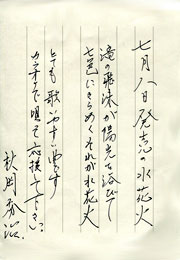 七月八日発売の水花火
滝の飛沫が陽光を浴びて
七色にきらめくそれが水花火
とても歌いやすい曲です
カラオケで唄って応援して下さい。
秋岡秀治